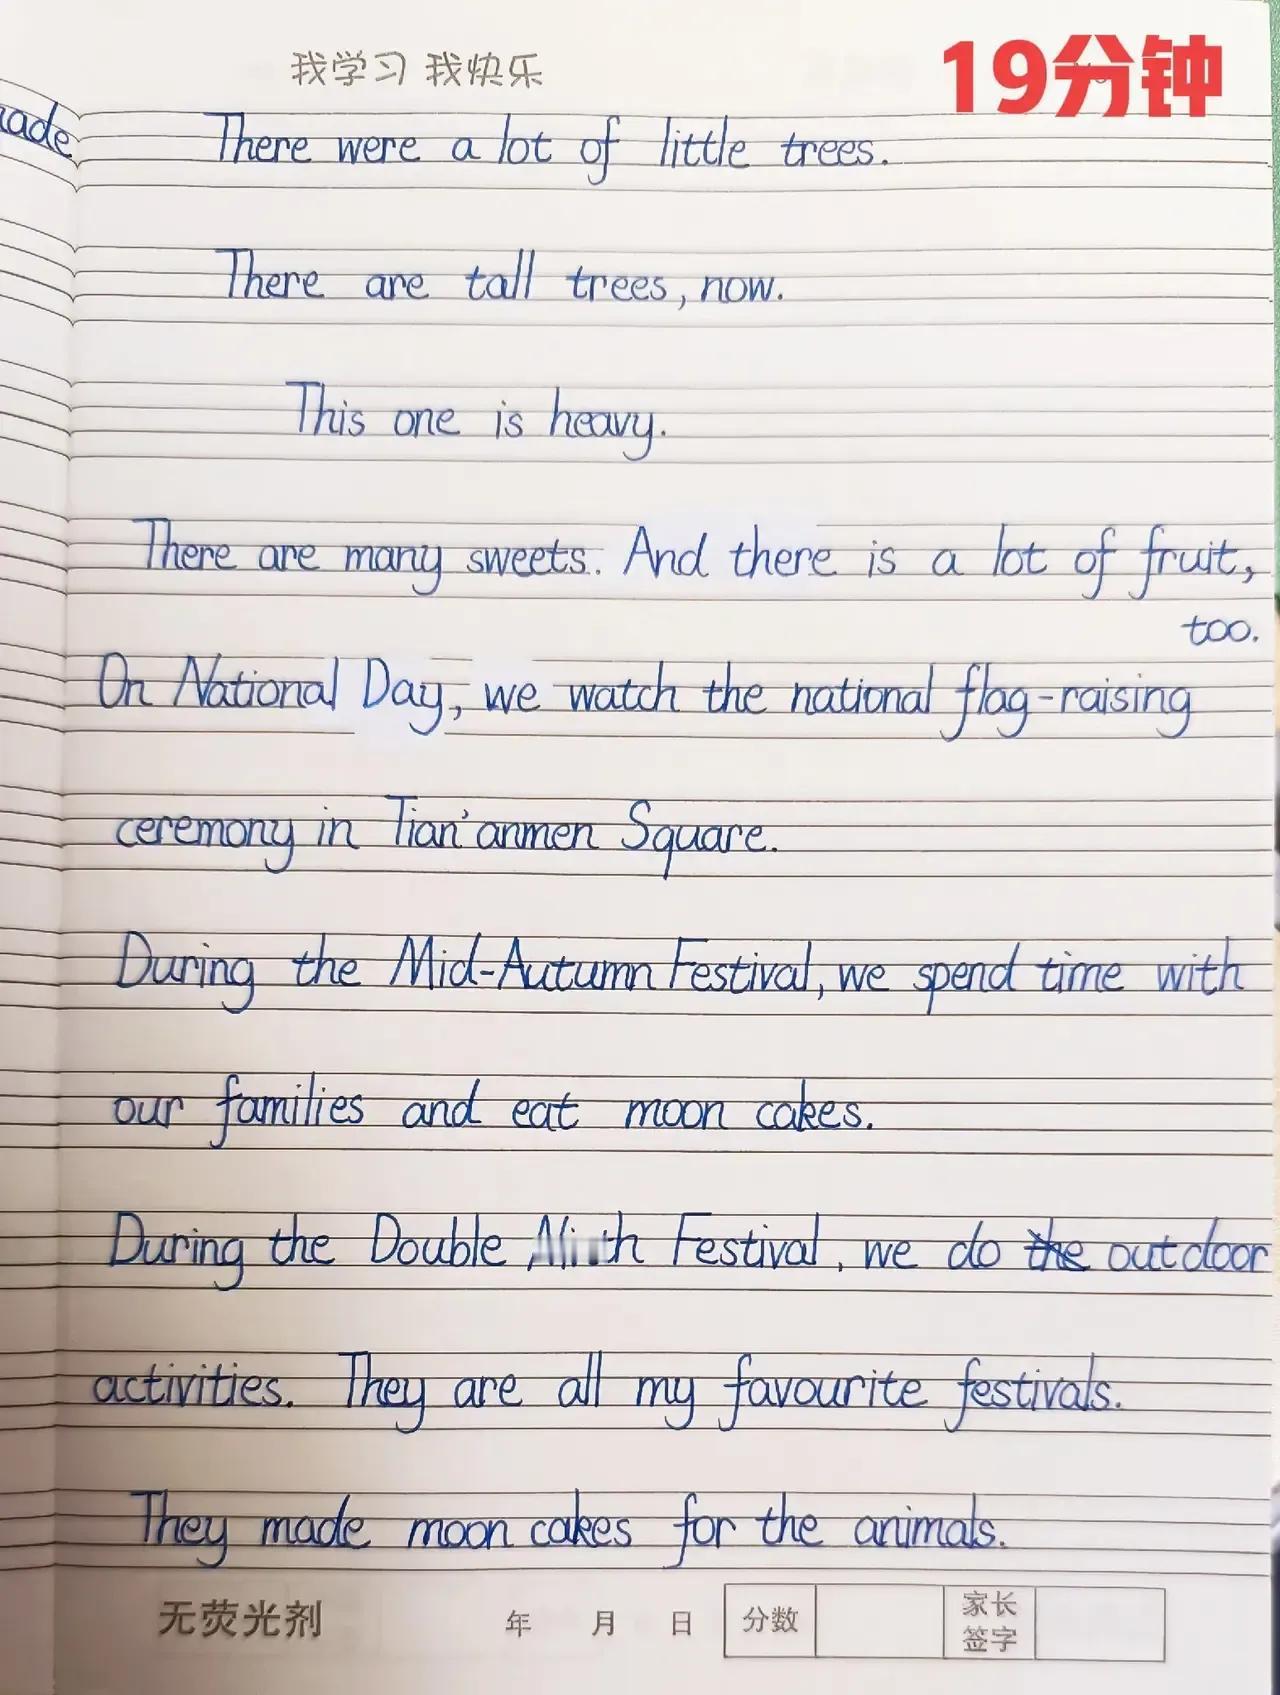 我学习 我快乐
19分钟
ade
There were a lot of little trees.
There are tall trees, now.
This one is heavy.
There are many sweets. And there is a lot of fruit,
too.
On National Day, we watch the national flag-raising
ceremony in Tian'anmen Square.
During the Mid-Autumn Festival, we spend time with
our families and eat moon cakes.
During the Double Festival, we do the outdoor
activities. They are all my favourite festivals.
They made moon cakes for the animals.
无荧光剂 年 月 日 分数 家长
签字